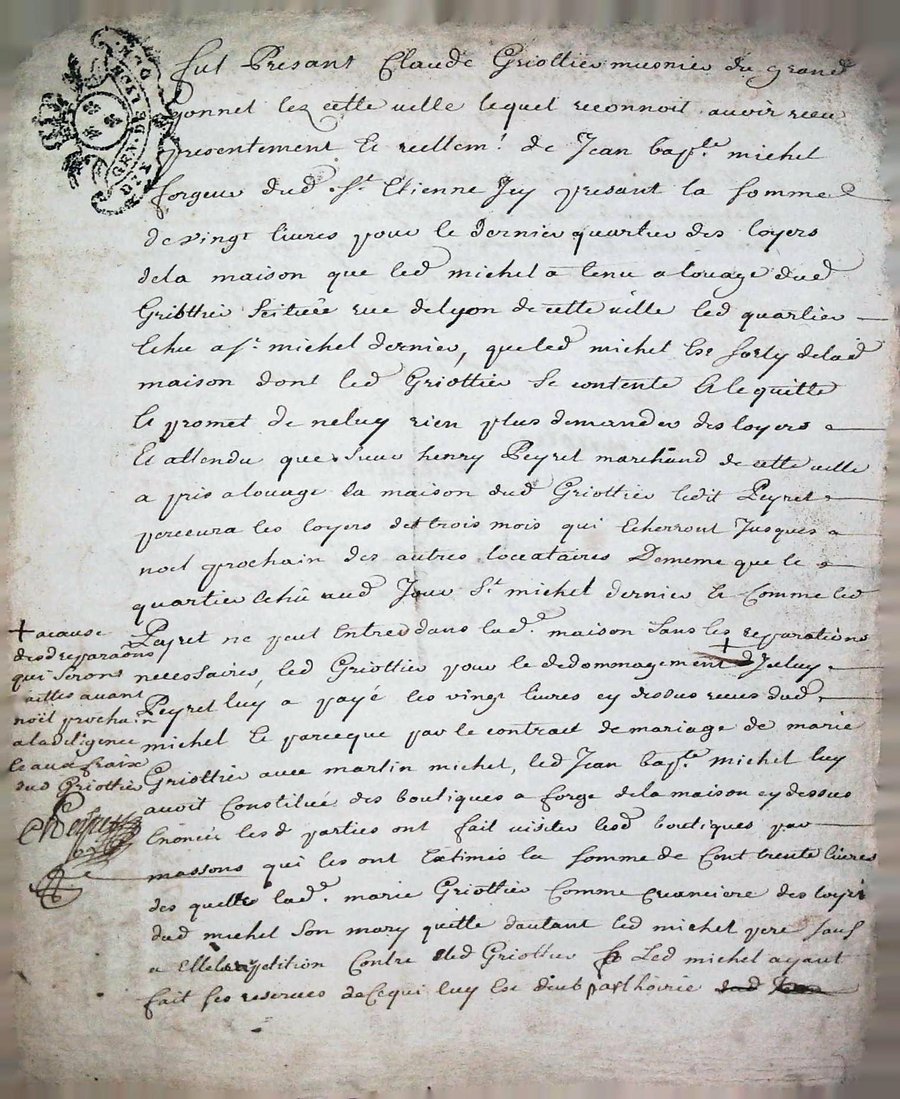 GEN. DE LYON
fut Presant Claude Griottier musnier du grand
gonnet lez cette ville lequel reconnoit avoir receu
presentement Et reellem.t de Jean bap.te michel
forgeur dud. St. Etienne Icy presant la somme
de vingt livres pour le dernier quartier des loyers
dela maison que led michel a tenu a louage dud
Griottier Scituée rue delyon de cette ville led quartier
Echu a st. michel dernier, que led michel Est sorty delad
maison dont led Griottier Se contente & le quitte
Et promet de neluy rien plus demander des loyers
Et attendu que Sieur henry Peyret marchand de cette ville
a pris a louage la maison dud Griottier ledit Peyret
percevra les loyers des trois mois qui Echerront Jusques a
noel prochain des autres locataires Dememe que le
quartier Echu aud Jour St. michel dernier Et Comme led
Peyret ne peut Entrer dans lad.e maison Sans les reparations
necessaires, led Griottier pour le dedommagement + d'Iceluy
Peyret luy a payé les vingt livres cy dessus receues dud
michel Et parceque par le contract de mariage de marie
Griottier avec martin michel, led Jean bap.te michel luy
avoit Constituée des boutiques a forge dela maison cy dessus
Enoncée lesd parties ont fait visiter lesd boutiques par
massons qui les ont Extimés la somme de Cent trente livres
des quelles lad.e marie Griottier Comme creanciere des loyers
dud michel Son mary quitte dautant led michel pere sauf
a Elle la repetition Contre led Griottier Led michel ayant
fait ses reserves de Cequi luy Est deub par lhoirie
+ acause
desd reparaons
qui Seront
faittes avant
noël prochain
ala diligence
Et aux fraix
dud Griottier
Peyret